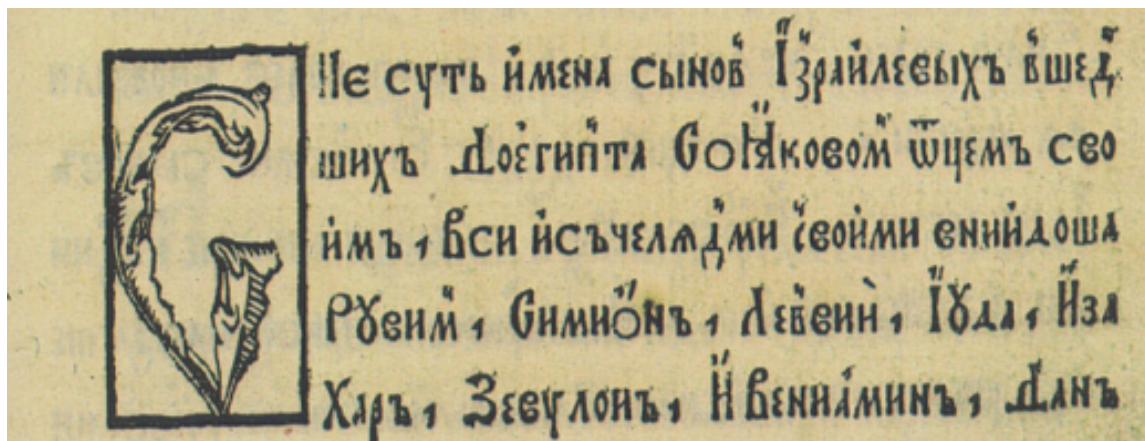 СИЕ суть имена сынов Їзраилевыхъ вшед
шихъ доегипта Со Ияковом ѿцемъ сво
имъ, вси исъчелядми своими внийдоша
Рувим, Симионъ, Леввии, Їуда, Иза
Харъ, Зевулонъ, И Вениаминъ, Данъ